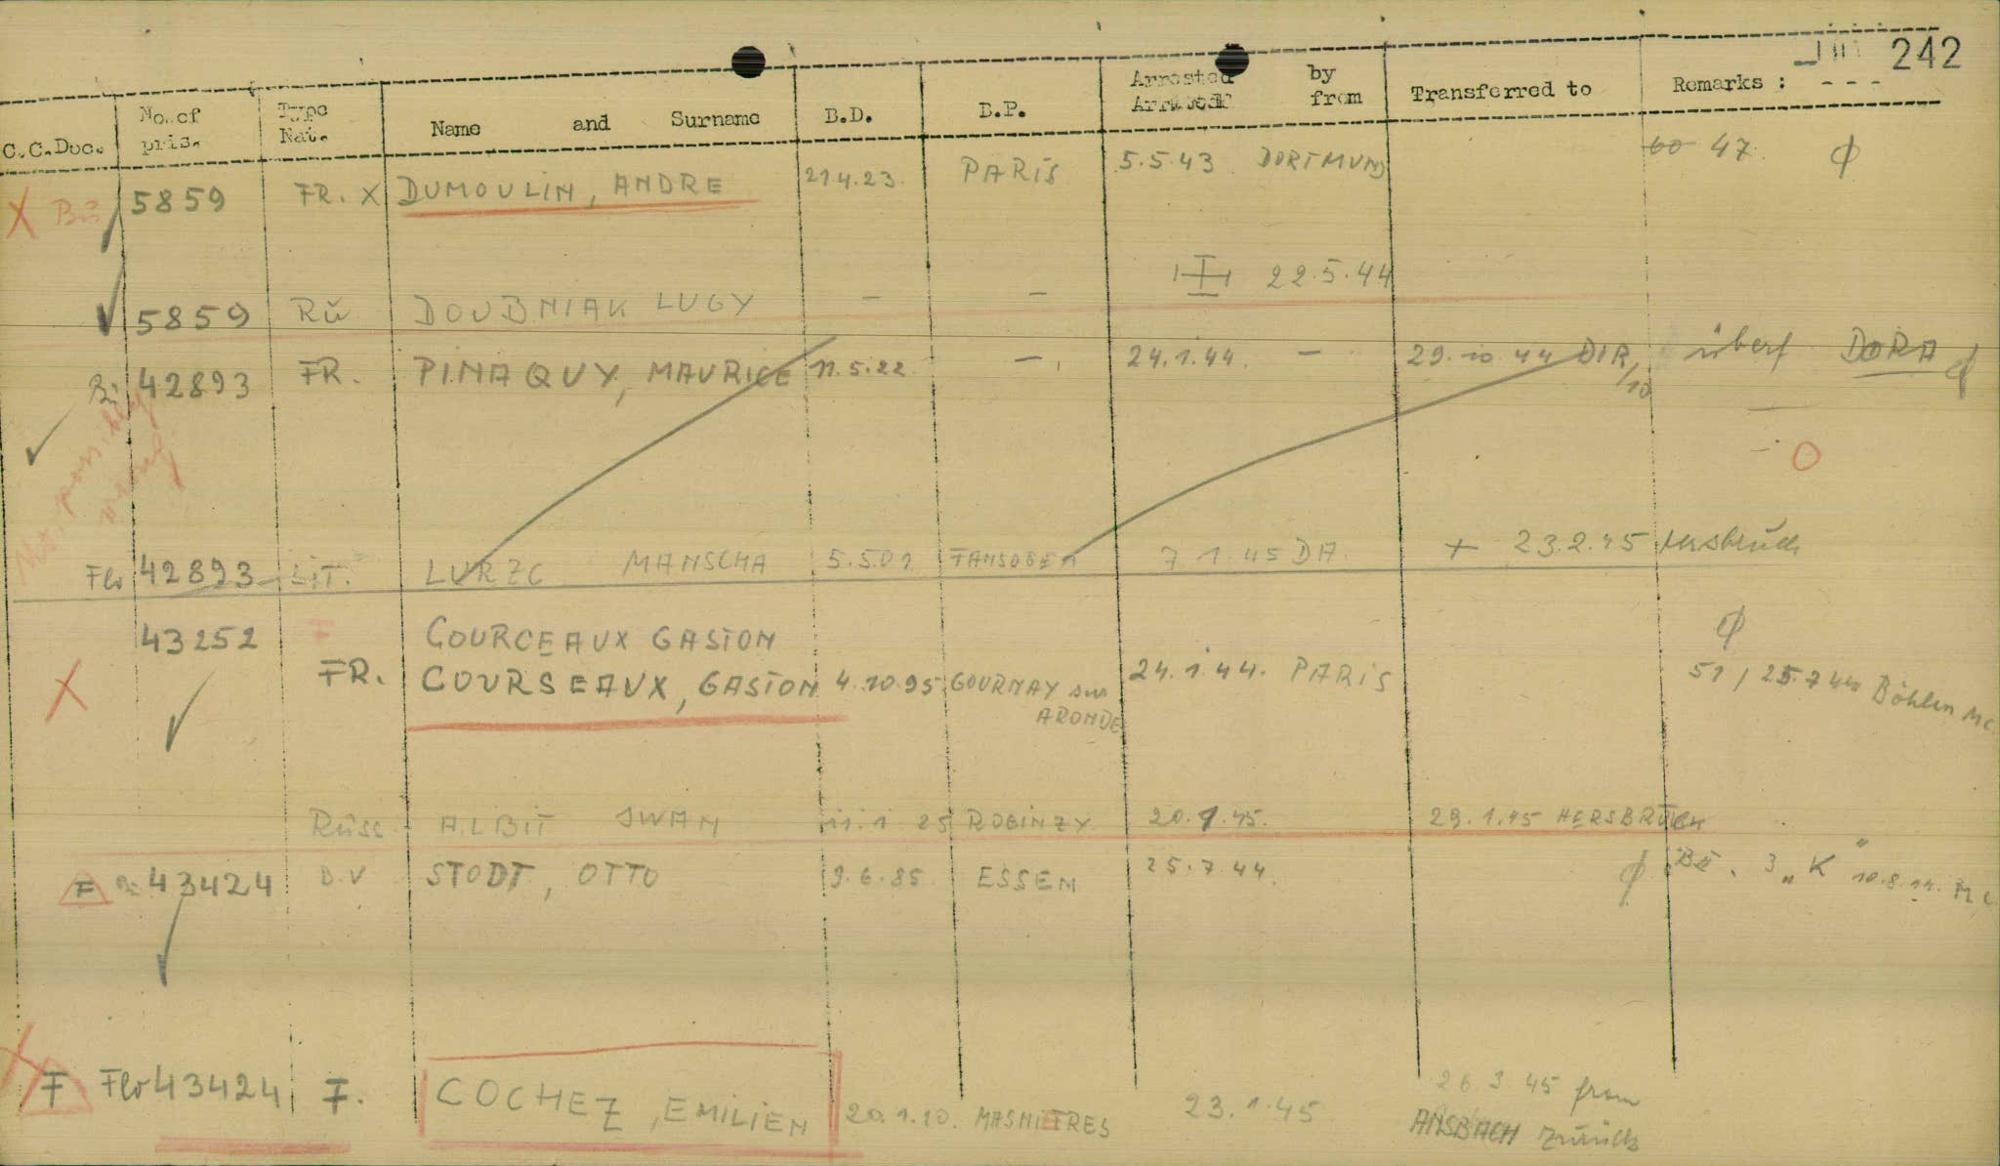 242
C.C.Doc. No. of pris. Type Nat. Name and Surname B.D. B.P. Arrested by from Transferred to Remarks :
Bu 5859 FR. X DUMOULIN, ANDRE 21.4.23. PARIS 5.5.43 DORTMUND 60 47. ϕ
5859 Rŭ DOUBNIAK LUGY — — 22.5.44
Bu 42893 FR. PINAQUY, MAURICE 11.5.22 — 24.1.44. — 29.10.44 DIR/10 überf DORA ϕ
No. possibly wrong
O
Flo 42893 LIT. LURZC MANSCHA 5.5.01 7.1.45 DA. + 23.2.45 Hersbruck
43252 F COURCEAUX GASTON ϕ
X FR. COURSEAUX, GASTON 4.10.95 GOURNAY sur ARONDE 24.1.44. PARIS 51 / 25.7.44 Böhlen Mc
Russ. ALBIT IWAN 11.1 25 ROBINZY 20.1.45. 29.1.45 HERSBRUCK
F 43424 D.V STODT, OTTO 9.6.85. ESSEN 25.7.44. ϕ Bŭ. 3 „K"
F Flo 43424 F. COCHEZ, EMILIEN 20.1.10. MASNIERES 23.1.45 26 3 45 from
ANSBACH zurück